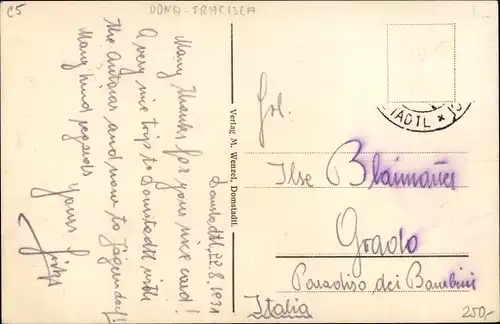 C5
DONA - FRACISCA
Domstadtl 22.8.1931
Many thanks for your nice card!
A very nice trip to Domstadtl with
the Autocar and now to Jägerndorf!
Many kind regards
Yours
Verlag M. Wenzel, Domstadtl.
STADTL *
Frl.
Ilse Blaimauer
Grado
Paradiso dei Bambini
Italia
250,-